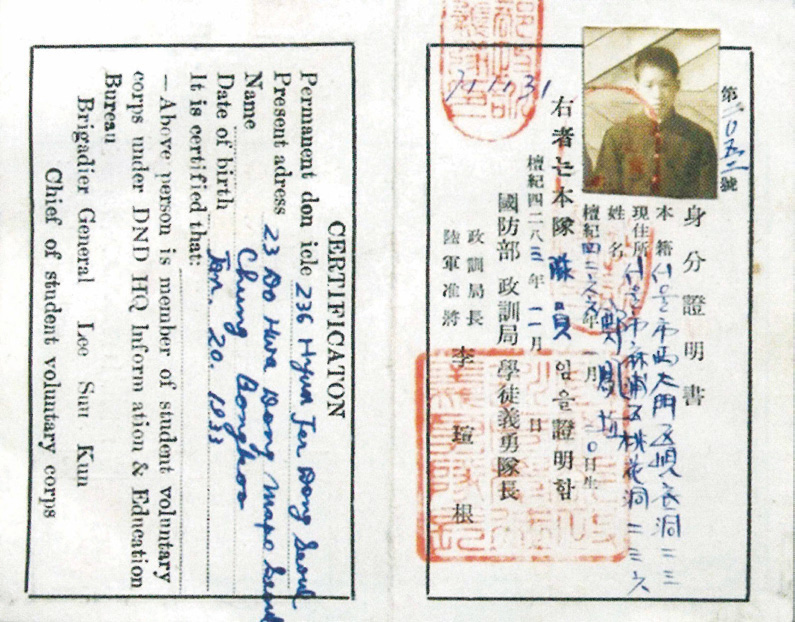 第二〇五二號
身分證明書
本籍 서울市西大門區峴底洞二三
現住所 서울市麻浦區桃花洞二三六
姓名 鄭鳳
檀紀四二六六年一月二〇日生
右者는本隊隊員임을證明함
檀紀四二八三年一一月 日
國防部 政訓局 學徒義勇隊長
政訓局長
陸軍准將 李瑄根
CERTIFICATON
Permanent don icle 236 Hyun Jer Dong Seoul
Present adress 23 Do Hwa Dong Mapo Seoul
Name Chung Bongkoo
Date of birth Jan. 20. 1933
It is certified that:
—Above person is member of student voluntary
corps under DND HQ Inform ation & Education
Bureau
Brigadier General Lee Sun Kun
Chief of student voluntary corps